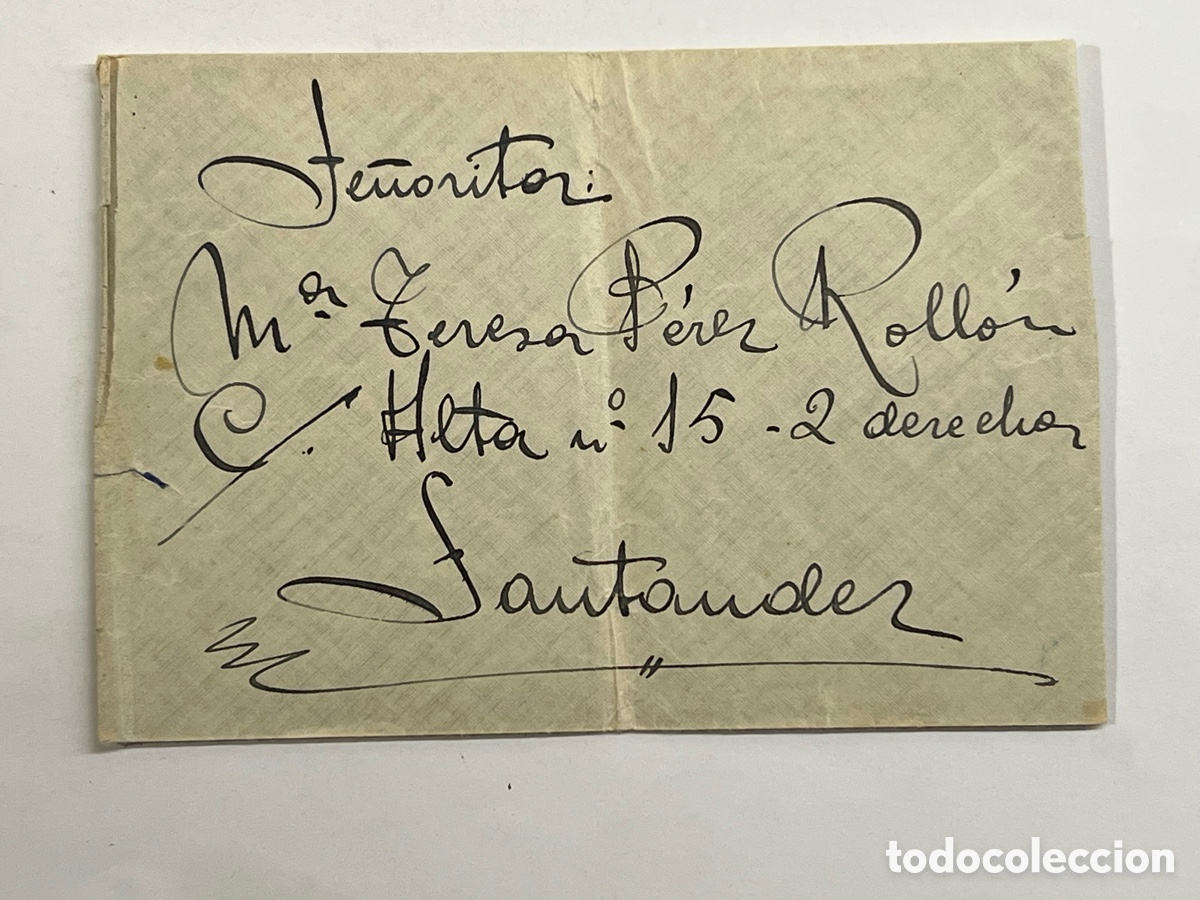 Señorita:
Mª Teresa Pérez Rollón
C/. Alta nº 15 - 2 derecha
Santander
todocoleccion